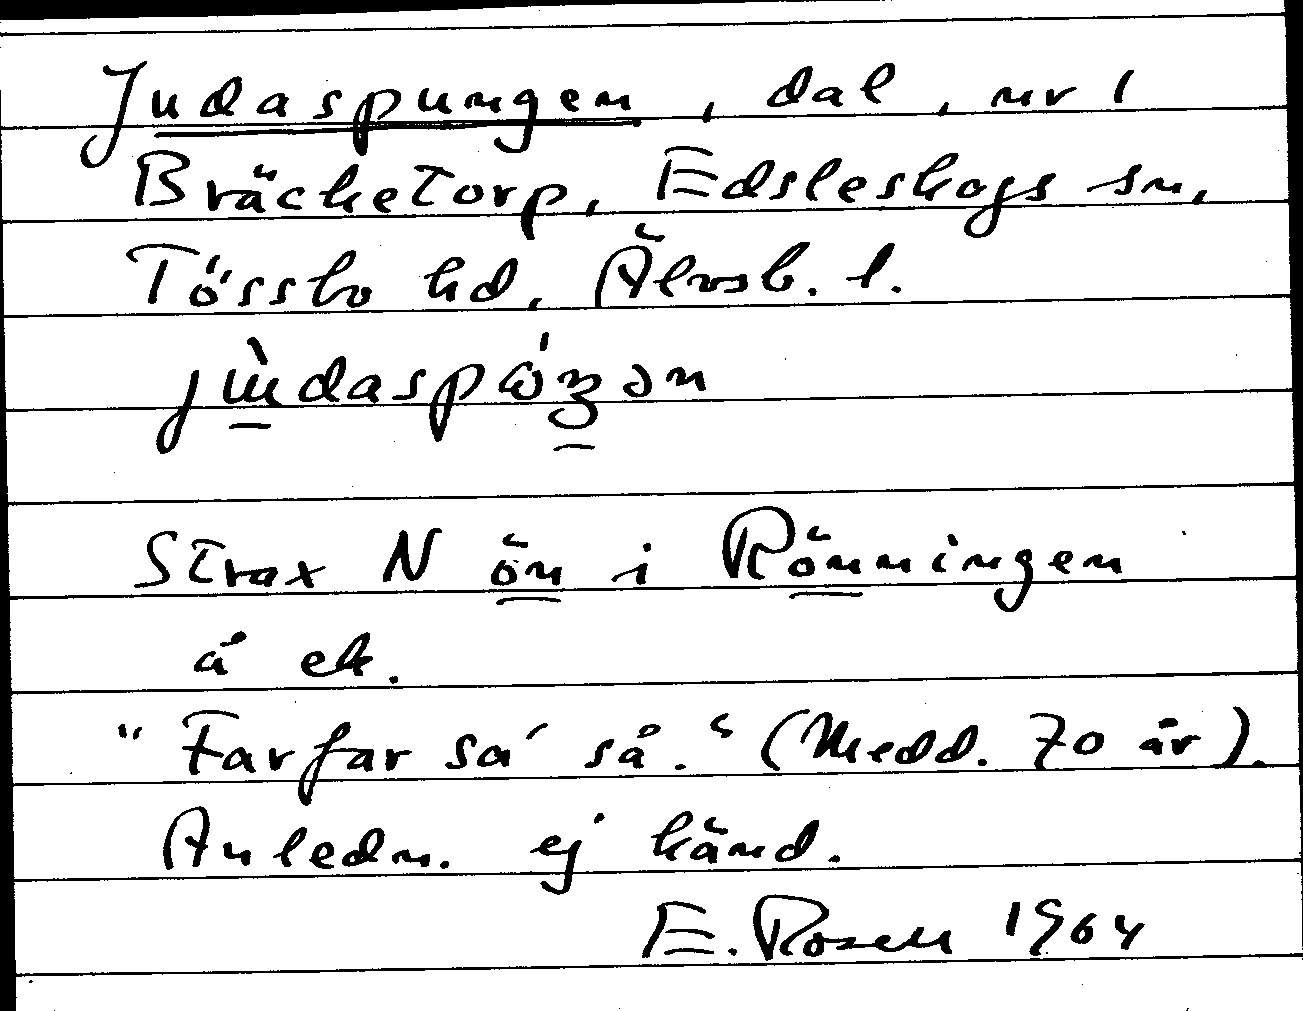 Judaspungen, dal, nr 1
Bräcketorp, Edsleskogs sn,
Tössbo hd, Älvsb. l.
Strax N ön i Rönningen
å ek.
"Farfar sa' så." (Medd. 70 år).
Anledn. ej känd.
E. Rosell 1964